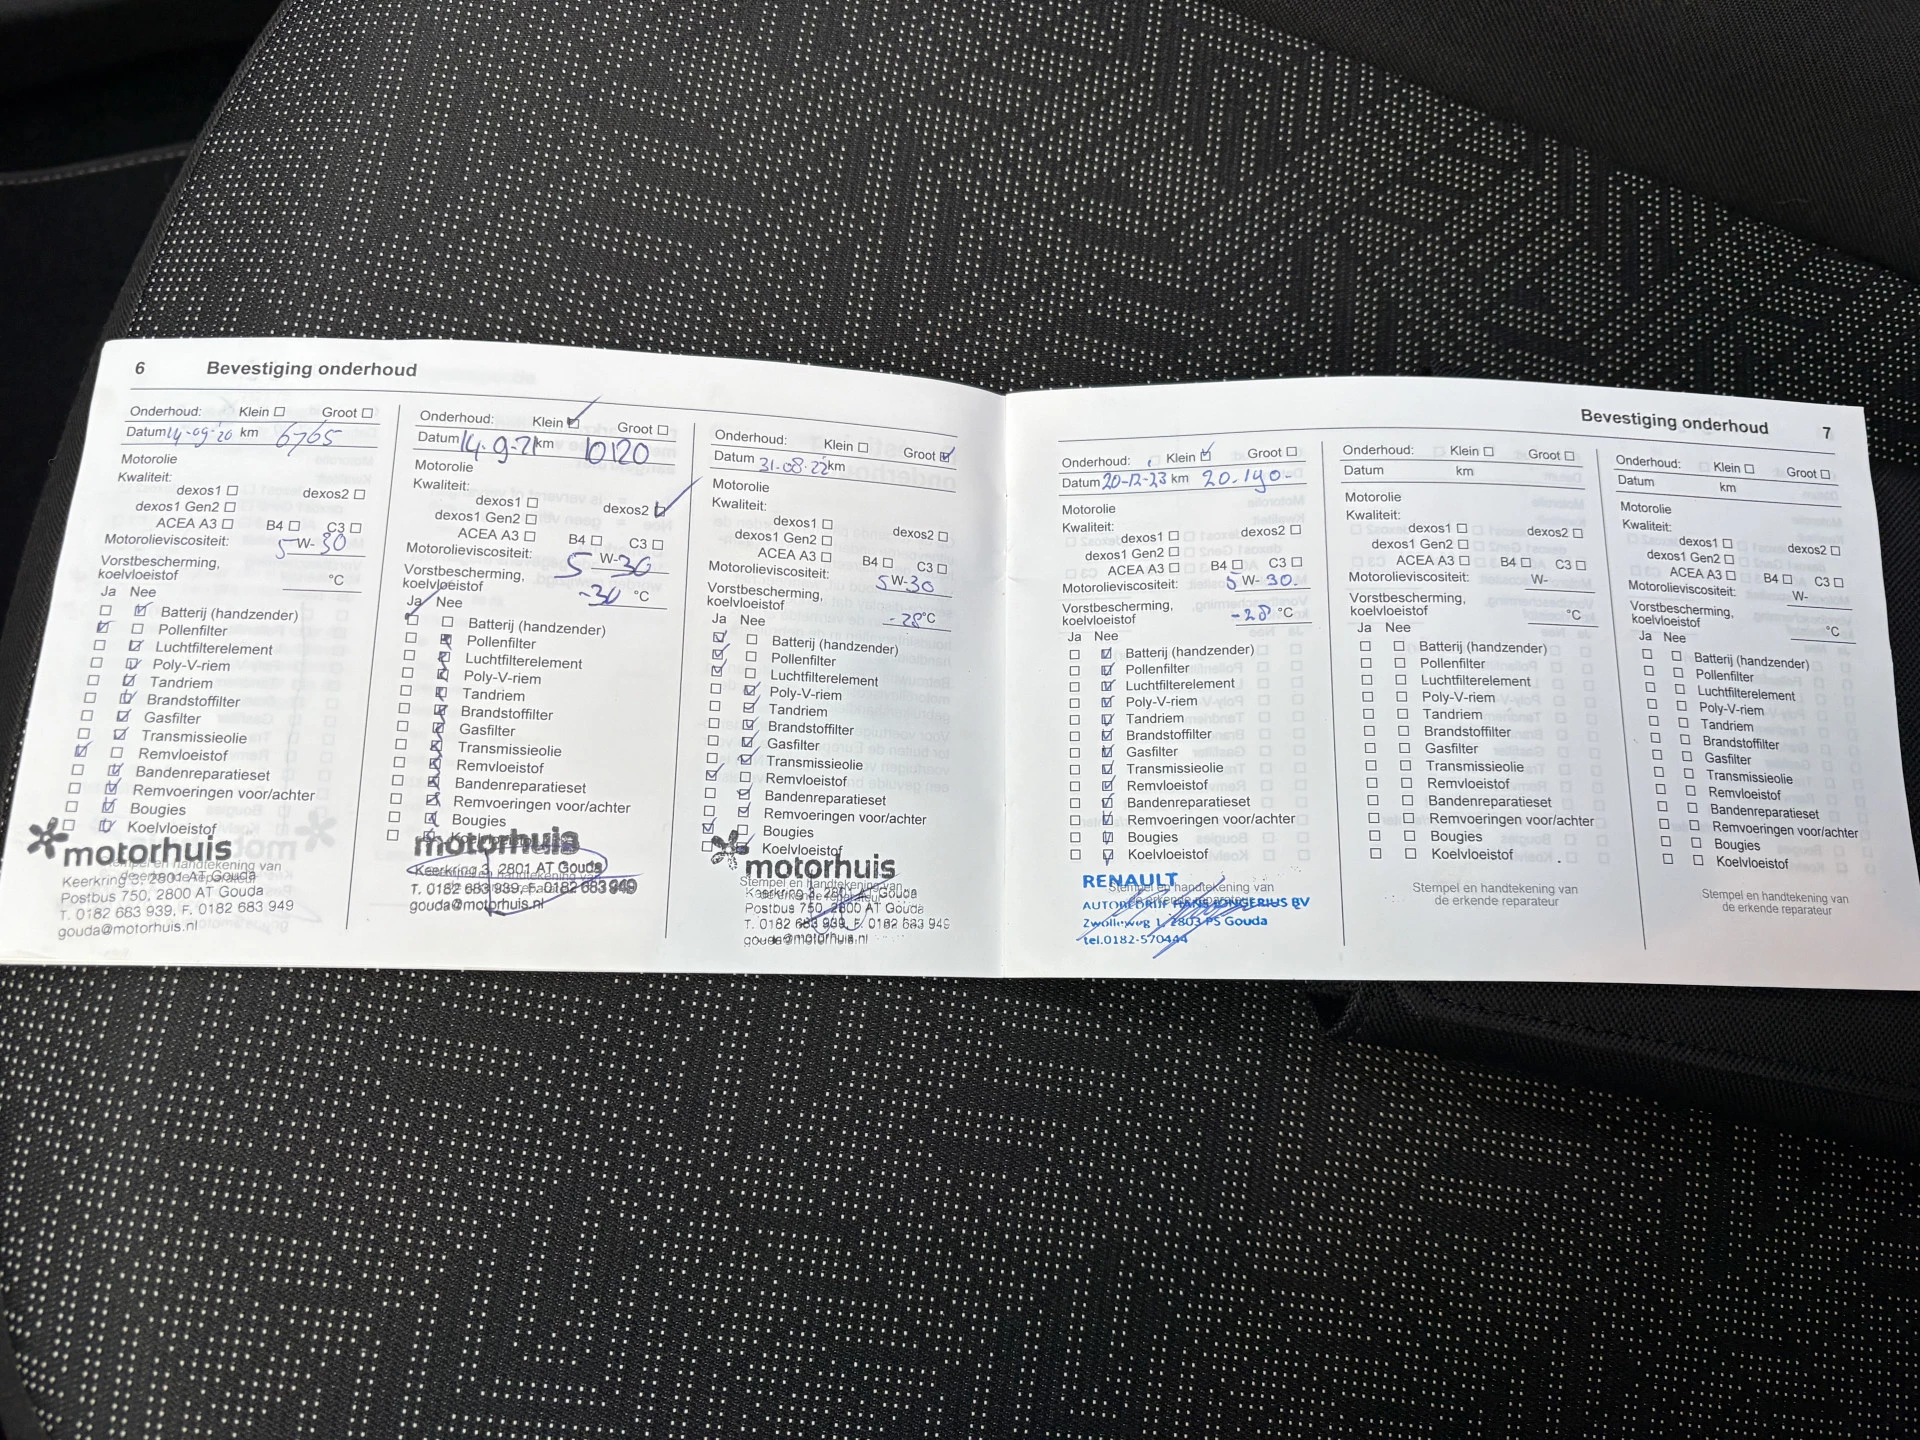 6 Bevestiging onderhoud
Onderhoud: Klein ☐ Groot ☐
Datum 14-09-'20 km 6765
Motorolie
Kwaliteit:
dexos1 ☐ dexos2 ☐
dexos1 Gen2 ☐
ACEA A3 ☐ B4 ☐ C3 ☐
Motorolieviscositeit: 5 W- 30
Vorstbescherming,
koelvloeistof °C
Ja Nee
☐ ☑ Batterij (handzender)
☑ ☐ Pollenfilter
☐ ☑ Luchtfilterelement
☐ ☑ Poly-V-riem
☐ ☑ Tandriem
☐ ☑ Brandstoffilter
☐ ☑ Gasfilter
☐ ☑ Transmissieolie
☑ ☐ Remvloeistof
☐ ☑ Bandenreparatieset
☐ ☑ Remvoeringen voor/achter
☐ ☑ Bougies
☐ ☑ Koelvloeistof
motorhuis
Stempel en handtekening van
de erkende reparateur
Keerkring 3, 2801 AT Gouda
Postbus 750, 2800 AT Gouda
T. 0182 683 949, F. 0182 683 949
gouda@motorhuis.nl
Onderhoud: Klein ☑ Groot ☐
Datum 14-9-21 km 10120
Motorolie
Kwaliteit:
dexos1 ☐ dexos2 ☑
dexos1 Gen2 ☐
ACEA A3 ☐ B4 ☐ C3 ☐
Motorolieviscositeit: 5 W-30
Vorstbescherming,
koelvloeistof -30 °C
Ja Nee
☑ ☐ Batterij (handzender)
☐ ☑ Pollenfilter
☐ ☑ Luchtfilterelement
☐ ☑ Poly-V-riem
☐ ☑ Tandriem
☐ ☑ Brandstoffilter
☐ ☑ Gasfilter
☐ ☑ Transmissieolie
☐ ☑ Remvloeistof
☐ ☑ Bandenreparatieset
☐ ☑ Remvoeringen voor/achter
☐ ☑ Bougies
☐ ☑ Koelvloeistof
motorhuis
Keerkring 3, 2801 AT Gouda
T. 0182 683 939, F. 0182 683 949
gouda@motorhuis.nl
Onderhoud: Klein ☐ Groot ☑
Datum 31-08-22 km
Motorolie
Kwaliteit:
dexos1 ☐ dexos2 ☐
dexos1 Gen2 ☐
ACEA A3 ☐ B4 ☐ C3 ☐
Motorolieviscositeit: 5 W-30
Vorstbescherming,
koelvloeistof -28 °C
Ja Nee
☑ ☐ Batterij (handzender)
☑ ☐ Pollenfilter
☑ ☐ Luchtfilterelement
☐ ☑ Poly-V-riem
☐ ☑ Tandriem
☐ ☑ Brandstoffilter
☐ ☑ Gasfilter
☐ ☑ Transmissieolie
☑ ☐ Remvloeistof
☐ ☑ Bandenreparatieset
☐ ☑ Remvoeringen voor/achter
☑ ☐ Bougies
☐ ☑ Koelvloeistof
motorhuis
Stempel en handtekening van
de erkende reparateur
Keerkring 3, 2801 AT Gouda
Postbus 750, 2800 AT Gouda
T. 0182 683 939, F. 0182 683 949
gouda@motorhuis.nl
Bevestiging onderhoud 7
Onderhoud: Klein ☑ Groot ☐
Datum 20-12-23 km 20.190-
Motorolie
Kwaliteit:
dexos1 ☐ dexos2 ☐
dexos1 Gen2 ☐
ACEA A3 ☐ B4 ☐ C3 ☐
Motorolieviscositeit: 5 W- 30.
Vorstbescherming,
koelvloeistof -28 °C
Ja Nee
☐ ☑ Batterij (handzender)
☐ ☑ Pollenfilter
☐ ☑ Luchtfilterelement
☐ ☑ Poly-V-riem
☐ ☑ Tandriem
☐ ☑ Brandstoffilter
☐ ☑ Gasfilter
☐ ☑ Transmissieolie
☐ ☑ Remvloeistof
☐ ☑ Bandenreparatieset
☐ ☑ Remvoeringen voor/achter
☐ ☑ Bougies
☐ ☑ Koelvloeistof
RENAULT
Stempel en handtekening van
de erkende reparateur
AUTOBEDRIJF HANS JONGERIUS BV
Zwolleweg 1, 2803 PS Gouda
tel.0182-570444
Onderhoud: Klein ☐ Groot ☐
Datum km
Motorolie
Kwaliteit:
dexos1 ☐ dexos2 ☐
dexos1 Gen2 ☐
ACEA A3 ☐ B4 ☐ C3 ☐
Motorolieviscositeit: W-
Vorstbescherming,
koelvloeistof °C
Ja Nee
☐ ☐ Batterij (handzender)
☐ ☐ Pollenfilter
☐ ☐ Luchtfilterelement
☐ ☐ Poly-V-riem
☐ ☐ Tandriem
☐ ☐ Brandstoffilter
☐ ☐ Gasfilter
☐ ☐ Transmissieolie
☐ ☐ Remvloeistof
☐ ☐ Bandenreparatieset
☐ ☐ Remvoeringen voor/achter
☐ ☐ Bougies
☐ ☐ Koelvloeistof
Stempel en handtekening van
de erkende reparateur
Onderhoud: Klein ☐ Groot ☐
Datum km
Motorolie
Kwaliteit:
dexos1 ☐ dexos2 ☐
dexos1 Gen2 ☐
ACEA A3 ☐ B4 ☐ C3 ☐
Motorolieviscositeit: W-
Vorstbescherming,
koelvloeistof °C
Ja Nee
☐ ☐ Batterij (handzender)
☐ ☐ Pollenfilter
☐ ☐ Luchtfilterelement
☐ ☐ Poly-V-riem
☐ ☐ Tandriem
☐ ☐ Brandstoffilter
☐ ☐ Gasfilter
☐ ☐ Transmissieolie
☐ ☐ Remvloeistof
☐ ☐ Bandenreparatieset
☐ ☐ Remvoeringen voor/achter
☐ ☐ Bougies
☐ ☐ Koelvloeistof
Stempel en handtekening van
de erkende reparateur